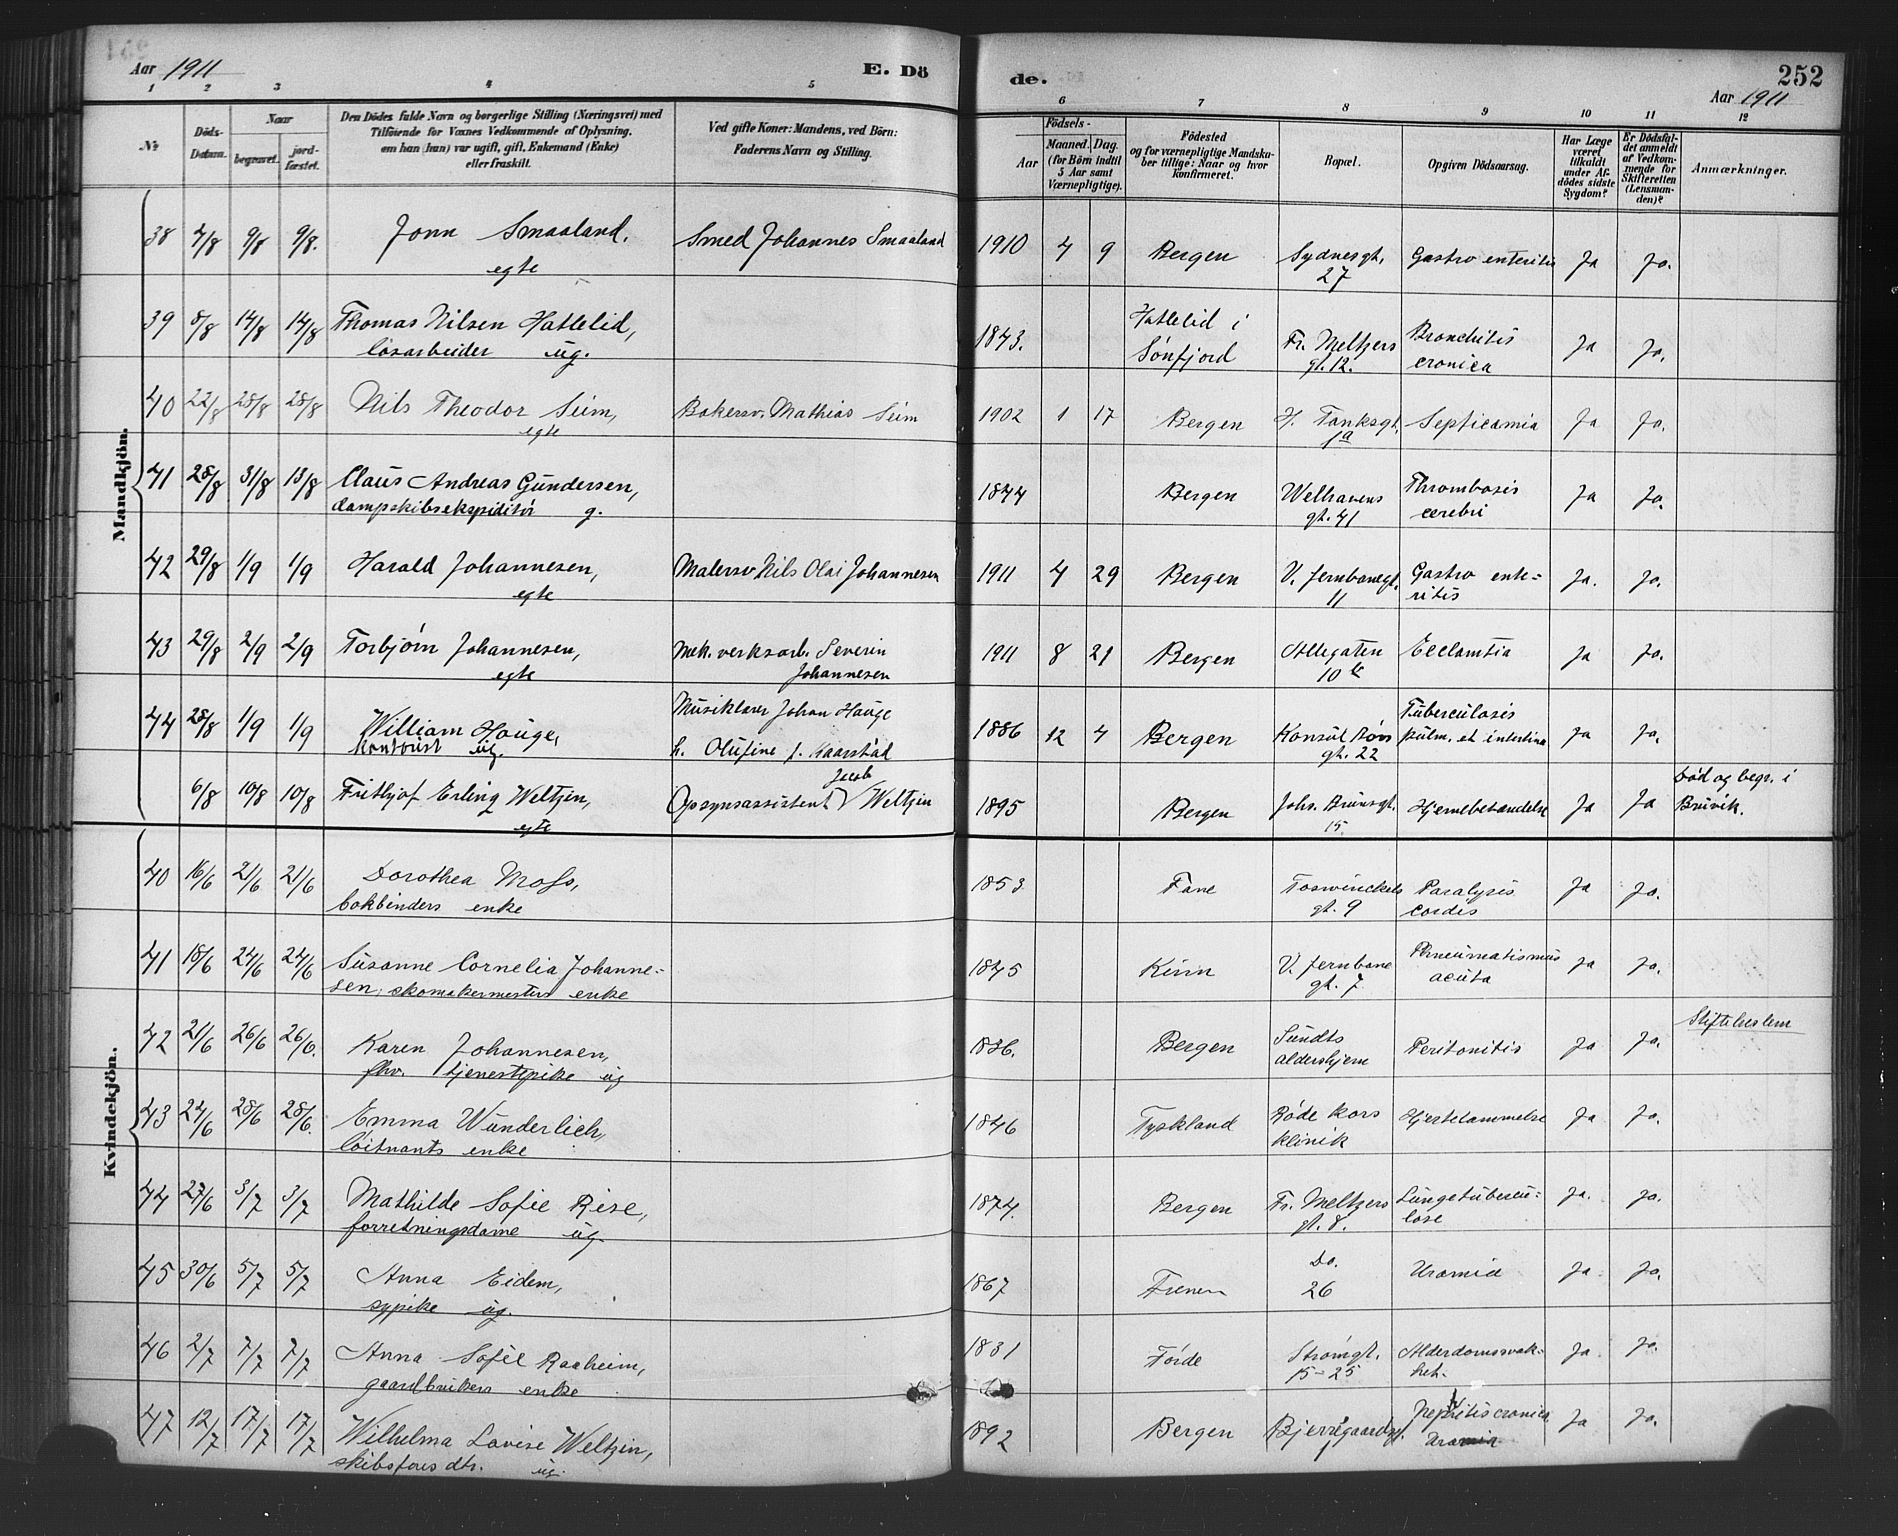 Aar 1911
E. Dö
de.
252
Aar 1911
1 2 3 4 5 6 7 8 9 10 11 12
No
Döds-Datum.
Naar
begravet.
jord-fæstet.
Den Dödes fulde Navn og borgerlige Stilling (Næringsvei) med
Tilföiende for Voxnes Vedkommende af Oplysning,
om han (hun) var ugift, gift, Enkemand (Enke)
eller fraskilt.
Ved gifte Koner: Mandens, ved Börn:
Faderens Navn og Stilling.
Födsels-
Aar
Maaned. Dag.
(for Börn indtil
5 Aar samt
Værnepligtige).
Födested
og for værnepligtige Mandska-
ber tillige: Naar og hvor
konfirmeret.
Bopæl.
Opgiven Dödsaarsag.
Har Læge
været
tilkaldt
under Af-
dödes sidste
Sygdom?
Er Dödsfal-
det anmeldt
af Vedkom-
mende for
Skifteretten
(Lensman-
den)?
Anmærkninger.
Mandkjön.
38 7/8 9/8 9/8. Jonn Smaaland, Smed Johannes Smaaland 1910 4 9 Bergen Sydnesgt. Gastro enteritis Ja Ja.
egte 27
39 8/8 14/8 14/8 Thomas Nilsen Hattelid, 1843. Hattelid i Fr. Meltzers Bronchitis Ja Ja.
lösarbeider ug. Sønfjord gt. 12. cronica
40 22/8 28/8 28/8 Nils Theodor Seim, Bakersv. Mathias Seim 1902 1 17 Bergen H. Tanksgt. Septicamia Ja Ja.
egte 1a
41 28/8 31/8 13/8 Claus Andreas Gundersen, 1844 Bergen Welhavens Thrombosis Ja Ja.
dampskibsekspiditör g. gt. 41 cerebri
42 29/8 1/9 1/9 Harald Johannesen, Malersv. Nils Olai Johannesen 1911 4 29 Bergen V. Jernbanegt. Gastro ente- Ja. Ja.
egte 11 ritis
43 29/8 2/9 2/9 Torbjörn Johannesen, Mek. verksarb. Severin 1911 8 21 Bergen Allegaten Ecclamtia Ja Ja.
egte Johannesen 10
44 28/8 1/9 1/9 William Hauge, Musiklærer Johan Hauge 1886 12 4 Bergen Konsul Börs Tuberculosis Ja Ja.
kontorist ug. h. Olufine f. Kaarstad gt. 22 pulm. et intertina
6/8 10/8 10/8 Frithjof Erling Weltzin, Opsynsassistent Jacob Weltzin 1895 Bergen Johs. Brunsgt. Hjernebetændelse Ja Ja Død og begr. i
egte 15. Bruvik.
Kvindekjön.
40 16/6 21/6 21/6 Dorothea Moss, 1853 Fane Toswinckels Paralysis Ja Ja.
bokbinders enke gt. 9 cordis
41 18/6 24/6 24/6 Susanne Cornelia Johanne- 1845 Kinn V. Jernbane Ja Ja.
sen, skomakermesters enke gt. 7 acuta
42 21/6 26/6 26/6. Karen Johannesen, 1836. Bergen Sundts Peritonitis Ja Ja. Stiftelseslem
fhv. tjenestepike ug aldershjem
43 24/6 28/6 28/6. Emma Wunderlich, 1846 Tyskland Røde Kors Hjertelammelse Ja Ja.
löitnants enke klinik
44 27/6 3/7 3/7 Mathilde Sofie Rise, 1874. Bergen Fr. Meltzers Lungetubercu- Ja. Ja.
forretningsdame ug. gt. 8. lose
45 30/6 5/7 5/7 Anna Eidem, 1867 Do. Uramia Ja Ja.
sypike ug. 26
46 2/7 7/7 7/7 Anna Sofie Raaheim, 1831 Førde Strömgt. Alderdomssvak- Ja Ja.
gaardbrukers enke 15-25 het.
47 12/7 17/7 17/7 Wilhelma Lovise Weltzin, 1892 Bergen Nephritis cronica Ja Ja.
skibsförers dtr. ug. 1 Uramia